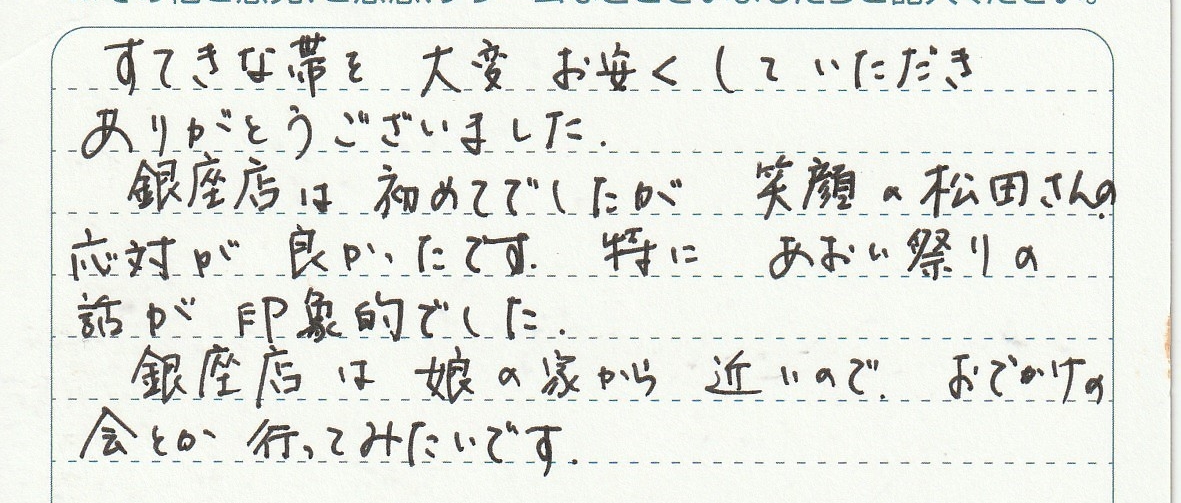 すてきな帯を 大変 お安くして いただき
ありがとうございました.
銀座店は 初めてでしたが 笑顔の松田さんの
応対が 良かったです. 特に あおい祭りの
話が 印象的でした.
銀座店は 娘の家から 近いので. おでかけの
会とか 行ってみたいです.